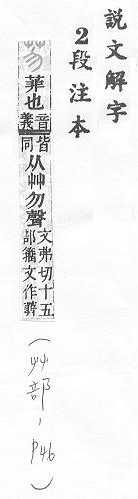 説文解字
2段注本
芴
菲也音義皆同从艸勿聲文弗切十五部籒文作
(艸部,p46)